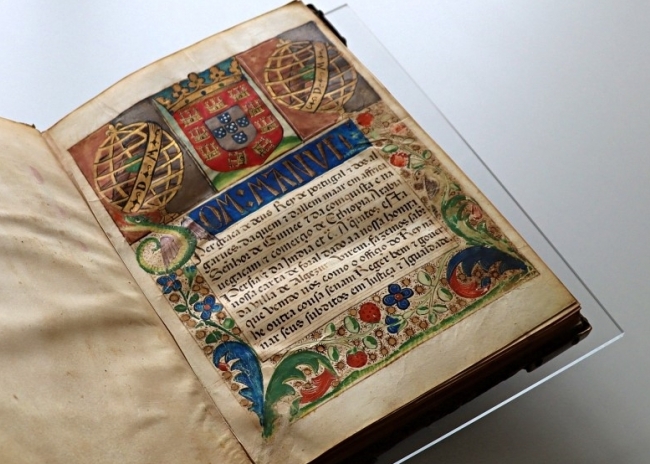 DOM:MANVEL
Per graça de deus Rey de portugal ⁊ dos al
garues daquem ⁊ dallem maar em affrica
Senhor de Guinee ⁊ da Conquista e na
uegaçam ⁊ comerçio de Ethiopia Arabia
Persia ⁊ da India A quantos esta
nossa carta de foral dado a nossa
da villa de algezur virem fazemos
que vemdo nos como o offiçio do Rey
he outra cousa senam Reger bem ⁊ gouer
nar seus subditos em justiça ⁊ igualdade